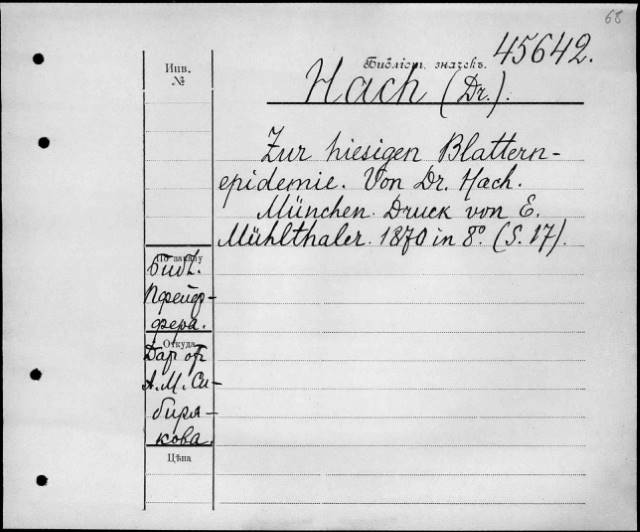 68
Инв.
№
Библіот. значекъ. 45642.
Hach (Dr.).
Zur hiesigen Blattern-
epidemie. Von Dr. Hach.
München. Druck von E.
Mühlthaler. 1870 in 8°. (S. 17).
По заказу
Библ.
Пфейф-
фера.
Откуда
Дар от
А. М. Си-
биря-
кова.
Цѣна